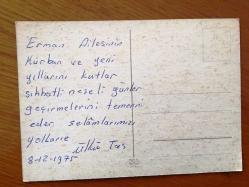 Erman Ailesinin
Kurban ve yeni
yıllarını kutlar
sıhhatli neşeli günler
geçirmelerini temenni
eder selâmlarımızı
yollarız
Ülkü Taş
8-12-1975